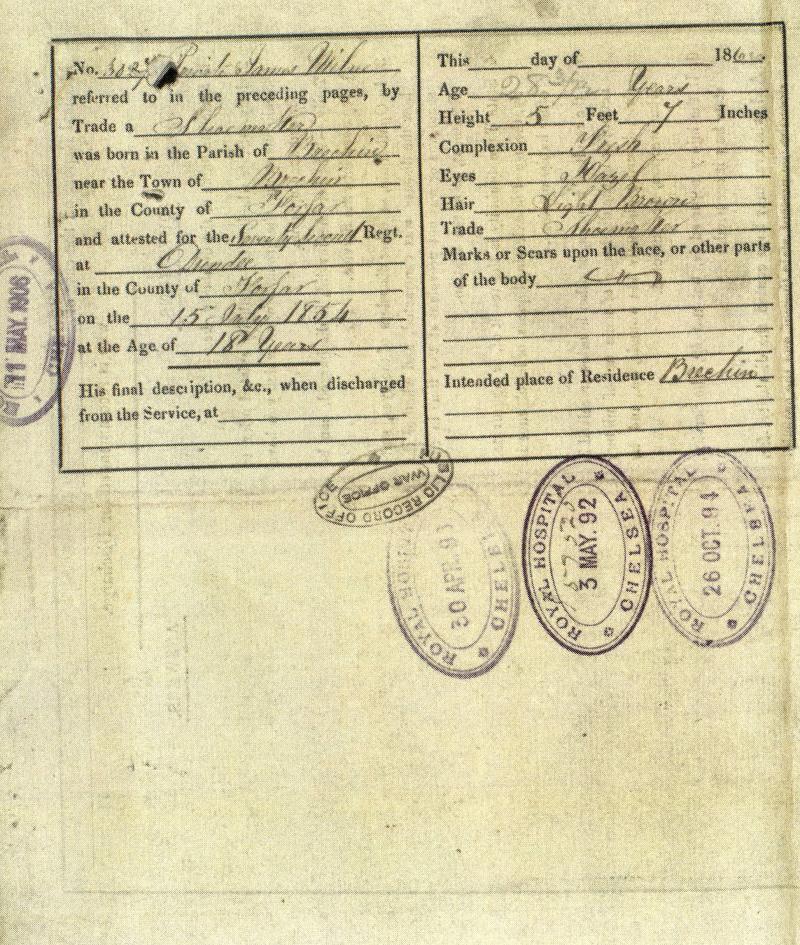 No. 3027 Private James Milne
referred to in the preceding pages, by
Trade a Shoemaker
was born in the Parish of Brechin
near the Town of Brechin
in the County of Forfar
and attested for the Seventy second Regt.
at Dundee
in the County of Forfar
on the 15 July 1854
at the Age of 18 Years
His final description, &c., when discharged
from the Service, at
This day of 186
Age 28 Years
Height 5 Feet 7 Inches
Complexion Fresh
Eyes Hazel
Hair Light Brown
Trade Shoemaker
Marks or Scars upon the face, or other parts
of the body
Intended place of Residence Brechin
11 MAY. 1906
PUBLIC RECORD OFFICE
WAR OFFICE
ROYAL HOSPITAL CHELSEA
30 APR. 91
ROYAL HOSPITAL CHELSEA
3 MAY. 92
ROYAL HOSPITAL CHELSEA
26 OCT. 94